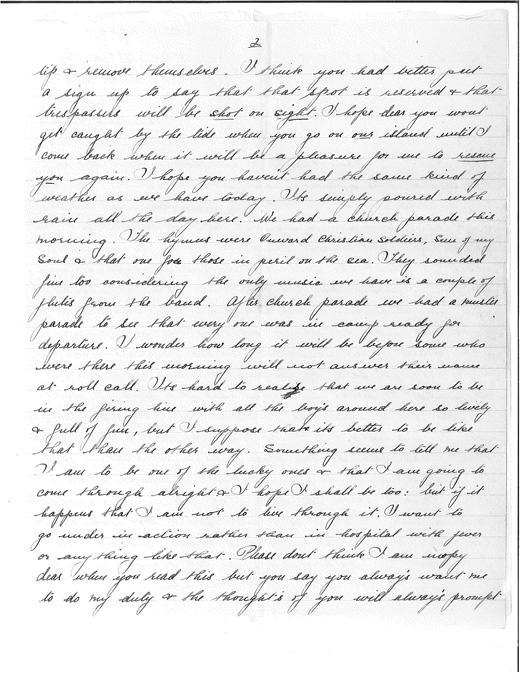 2
tip & remove themselves. I think you had better put
a sign up to say that that spot is reserved & that
trespassers will be shot on sight. I hope dear you wont
get caught by the tide when you go on our island until I
come back when it will be a pleasure for me to rescue
you again. I hope you havent had the same kind of
weather as we have today. Its simply poured with
rain all the day here. We had a church parade this
morning. The hymns were Onward Christian Soldiers, Sun of my
Soul & that one for those in peril on the sea. They sounded
fine too considering the only music we have is a couple of
flutes from the band. After church parade we had a muster
parade to see that every one was in camp ready for
departure. I wonder how long it will be before some who
were there this morning will not answer their name
at roll call. Its hard to realise that we are soon to be
in the firing line with all the boys around here so lively
& full of fun, but I suppose that its better to be like
that than the other way. Something seems to tell me that
I am to be one of the lucky ones & that I am going to
come through alright & I hope I shall be too: but if it
happens that I am not to live through it. I want to
go under in action rather than in hospital with fever
or anything like that. Please dont think I am mopy
dear when you read this but you say you always want me
to do my duty & the thought's of you will alway's prompt